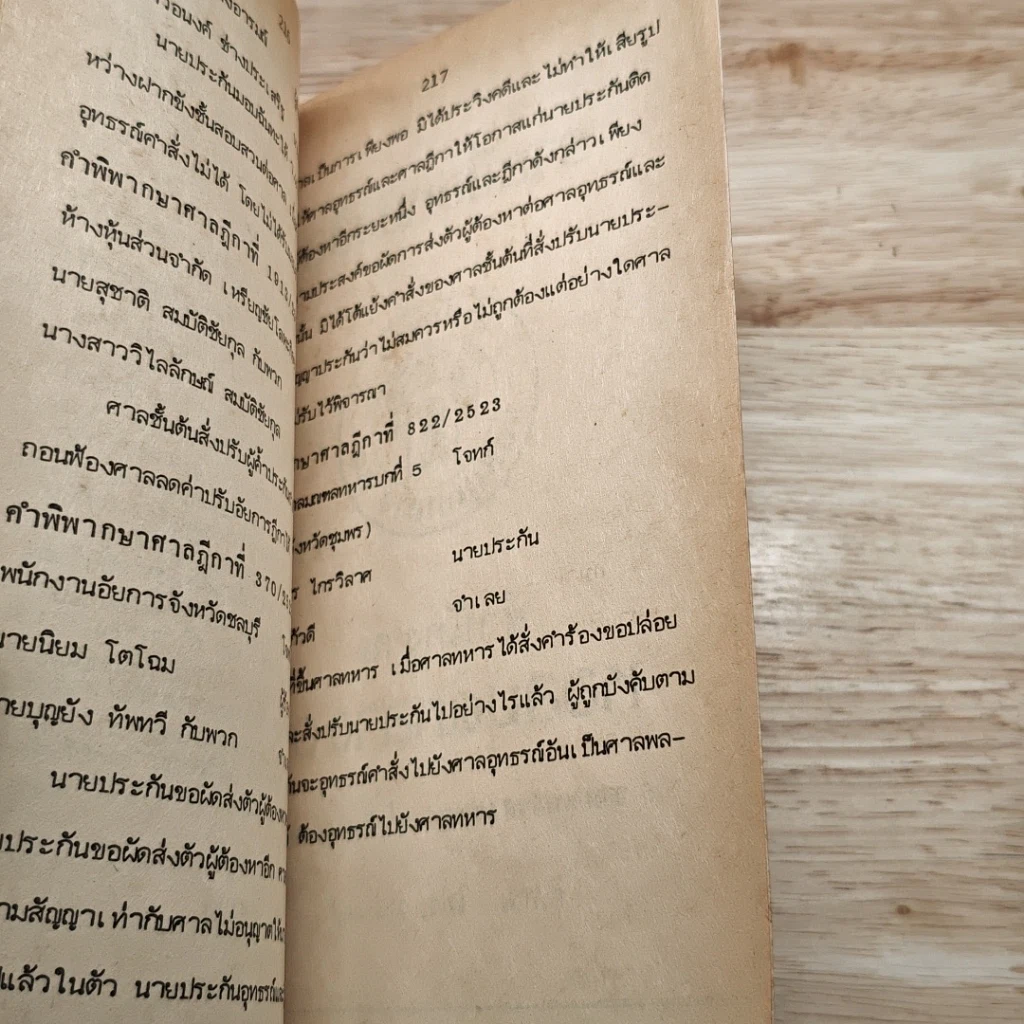 216
ช่างประเสริฐ
นายประกันมอบฉันทะได้
หว่างฝากขังชั้นสอบสวนต่อศาล
อุทธรณ์คำสั่งไม่ได้ โดยไม่ได้
คำพิพากษาศาลฎีกาที่
ห้างหุ้นส่วนจำกัด
นายสุชาติ สมบัติชัยกุล กับพวก
นางสาววิไลลักษณ์ สมบัติชัยกุล
ศาลชั้นต้นสั่งปรับผู้ค้ำประกัน
ถอนฟ้องศาลลดค่าปรับอัยการฎีกา
คำพิพากษาศาลฎีกาที่ 370/
พนักงานอัยการจังหวัดชลบุรี
นายนิยม โตโฉม
นายบุญยัง ทัพทวี กับพวก
นายประกันขอผัดส่งตัวผู้ต้อง
ประกันขอผัดส่งตัวผู้ต้องหาอีก
ตามสัญญาเท่ากับศาลไม่อนุญาต
แล้วในตัว นายประกันอุทธรณ์
217
เป็นการเพียงพอ มิได้ประวิงคดีและไม่ทำให้เสียรูป
ศาลอุทธรณ์และศาลฎีกาให้โอกาสแก่นายประกันติด
ต้องหาอีกระยะหนึ่ง อุทธรณ์และฎีกาดังกล่าวเพียง
ประสงค์ขอผัดการส่งตัวผู้ต้องหาต่อศาลอุทธรณ์และ
นั้น มิได้โต้แย้งคำสั่งของศาลชั้นต้นที่สั่งปรับนายประ-
ประกันว่าไม่สมควรหรือไม่ถูกต้องแต่อย่างใดศาล
รับไว้พิจารณา
ศาลฎีกาที่ 822/2523
มณฑลทหารบกที่ 5 โจทก์
จังหวัดชุมพร)
ไกรวิลาศ นายประกัน
จำเลย
ที่ขึ้นศาลทหาร เมื่อศาลทหารได้สั่งคำร้องขอปล่อย
และสั่งปรับนายประกันไปอย่างไรแล้ว ผู้ถูกบังคับตาม
จะอุทธรณ์คำสั่งไปยังศาลอุทธรณ์อันเป็นศาลพล-
ต้องอุทธรณ์ไปยังศาลทหาร